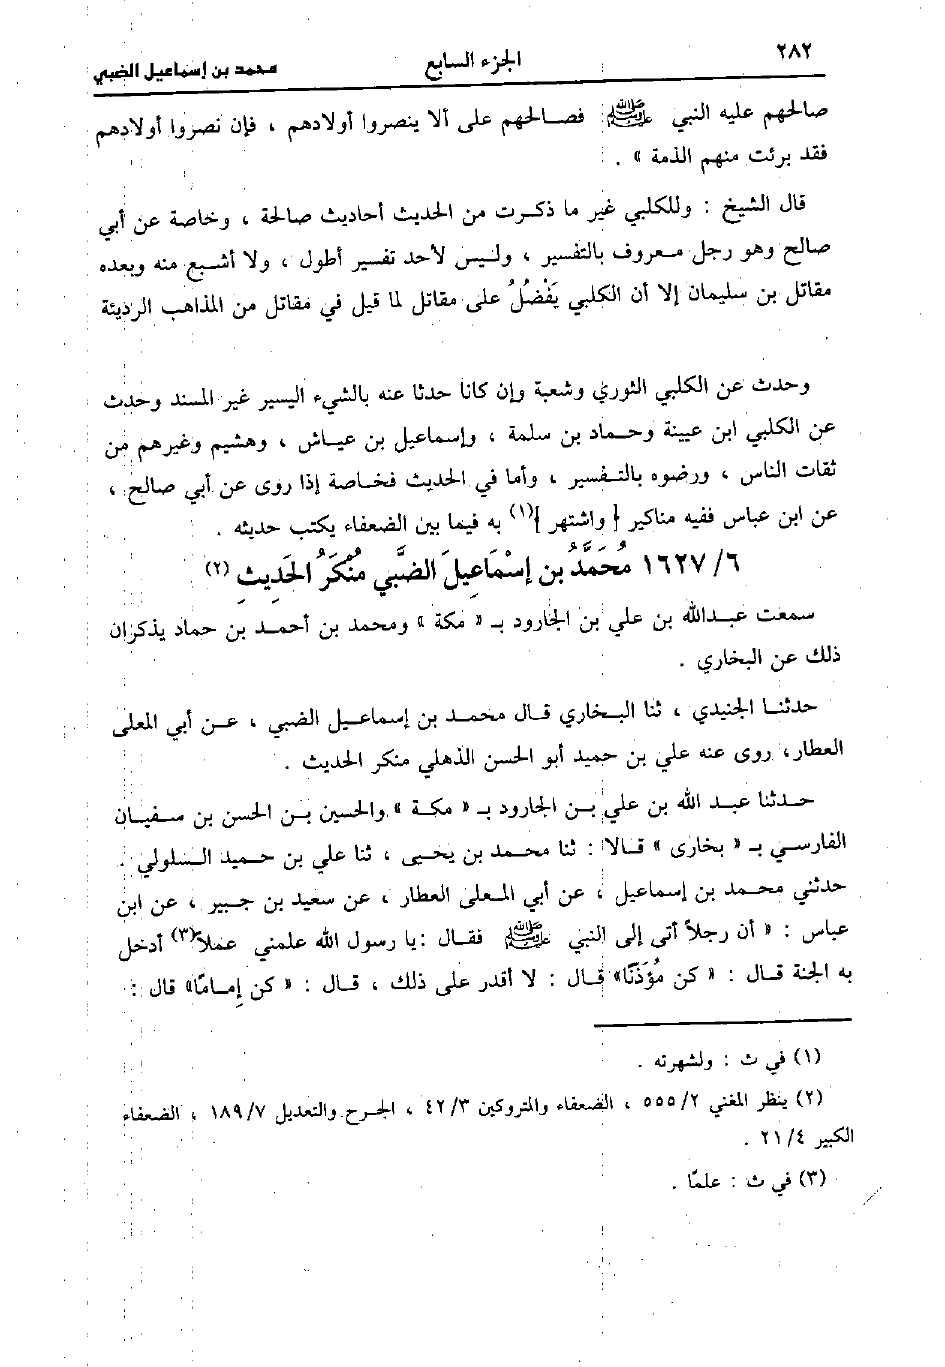 ٢٨٢ الجزء السابع محمد بن إسماعيل الضبي
صالحهم عليه النبي ﷺ فصالحهم على ألا ينصروا أولادهم ، فإن نصروا أولادهم
فقد برئت منهم الذمة » .
قال الشيخ : وللكلبي غير ما ذكرت من الحديث أحاديث صالحة ، وخاصة عن أبي
صالح وهو رجل معروف بالتفسير ، وليس لأحد تفسير أطول ، ولا أشبع منه وبعده
مقاتل بن سليمان إلا أن الكلبي يَفْضُلُ على مقاتل لما قيل في مقاتل من المذاهب الرديئة
وحدث عن الكلبي الثوري وشعبة وإن كانا حدثا عنه بالشيء اليسير غير المسند وحدث
عن الكلبي ابن عيينة وحماد بن سلمة ، وإسماعيل بن عياش ، وهشيم وغيرهم من
ثقات الناس ، ورضوه بالتفسير ، وأما في الحديث فخاصة إذا روى عن أبي صالح ،
عن ابن عباس ففيه مناكير [ واشتهر ](١) به فيما بين الضعفاء يكتب حديثه .
١٦٢٧/٦ مُحَمَّدُ بن إسْمَاعِيلَ الضَّبِّي مُنْكَرُ الحَدِيثِ (٢)
سمعت عبدالله بن علي بن الجارود بـ « مكة » ومحمد بن أحمد بن حماد يذكران
ذلك عن البخاري .
حدثنا الجنيدي ، ثنا البخاري قال محمد بن إسماعيل الضبي ، عن أبي المعلى
العطار، روى عنه علي بن حميد أبو الحسن الذهلي منكر الحديث .
حدثنا عبد الله بن علي بن الجارود بـ « مكة » والحسين بن الحسن بن سفيان
الفارسي بـ « بخارى » قالا : ثنا محمد بن يحيى ، ثنا علي بن حميد السلولي .
حدثني محمد بن إسماعيل ، عن أبي المعلى العطار ، عن سعيد بن جبير ، عن ابن
عباس : « أن رجلاً أتى إلى النبي ﷺ فقال :يا رسول الله علمني عملاً(٣) أدخل
به الجنة قال : « كن مُؤَذنًا» قال : لا أقدر على ذلك ، قال : « كن إمامًا» قال :
(١) في ث : ولشهرته .
(٢) ينظر المغني ٥٥٥/٢ ، الضعفاء والمتروكين ٤٢/٣ ، الجرح والتعديل ١٨٩/٧ ، الضعفاء
الكبير ٢١/٤ .
(٣) في ث : علمًا .